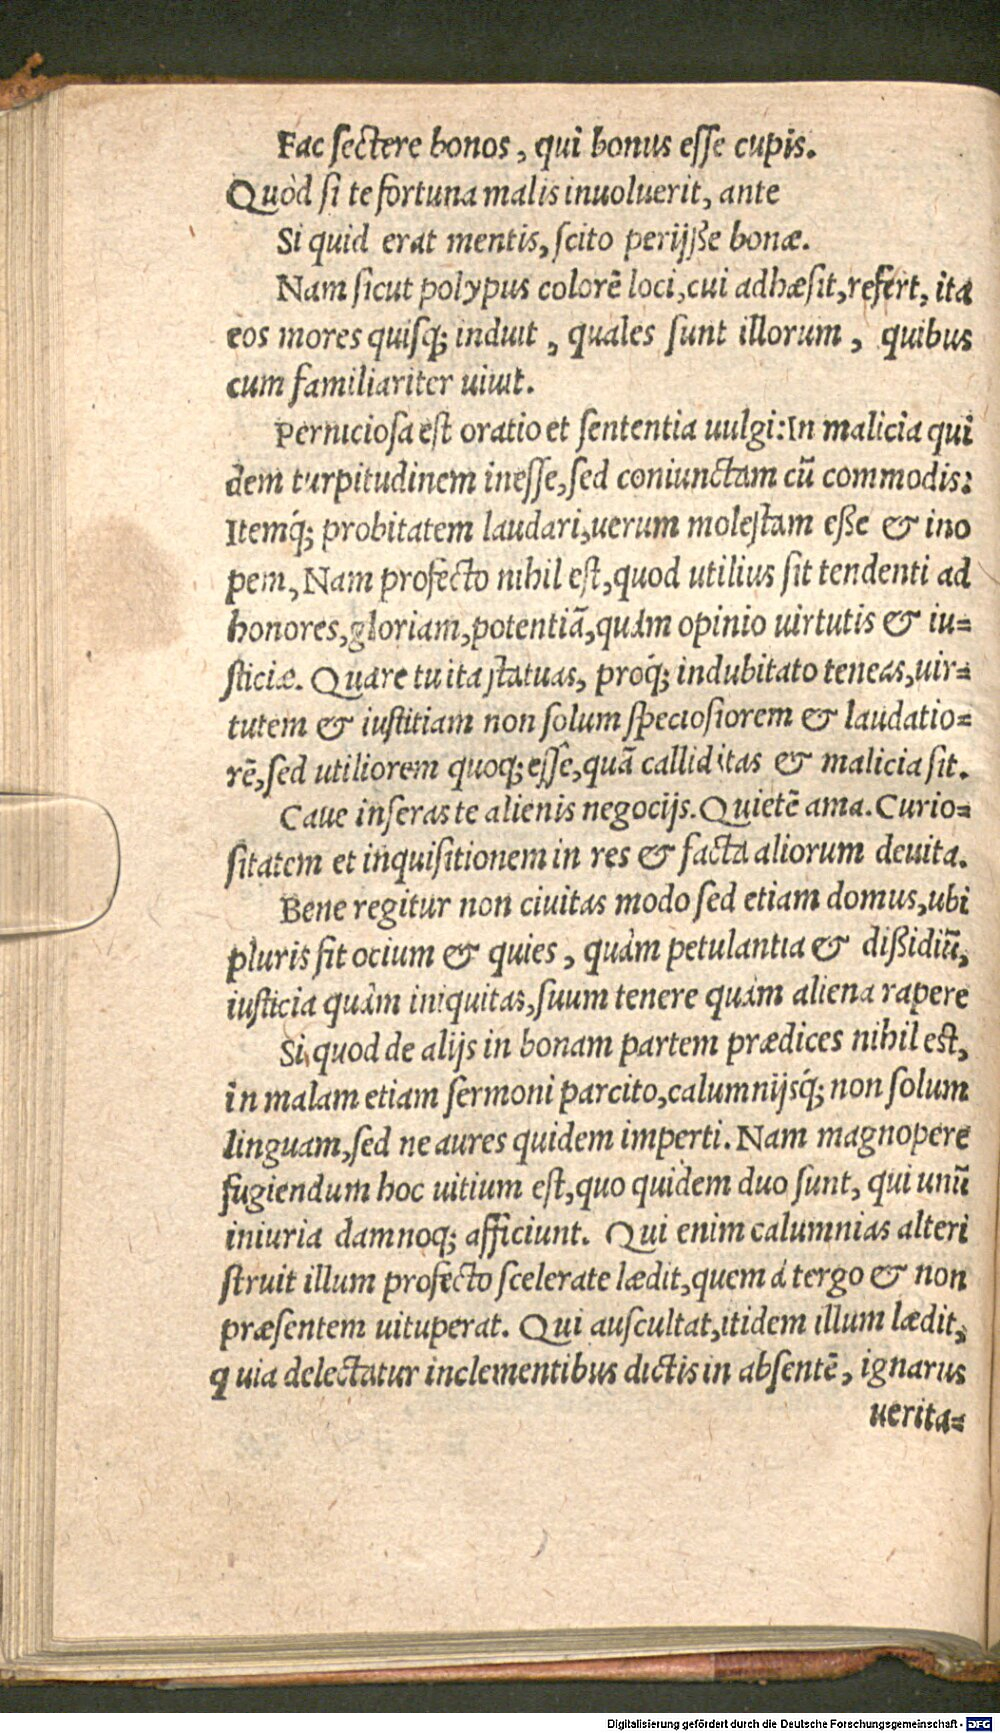 Fac sectere bonos, qui bonus esse cupis.
Quòd si te fortuna malis inuoluerit, ante
Si quid erat mentis, scito perijsse bonæ.
Nam sicut polypus colorē loci, cui adhæsit, refert, ita
eos mores quisq; induit, quales sunt illorum, quibus
cum familiariter uiuit.
Perniciosa est oratio et sententia uulgi: In malicia qui
dem turpitudinem inesse, sed coniunctam cū commodis:
Itemq́; probitatem laudari, uerum molestam esse & ino
pem, Nam profecto nihil est, quod utilius sit tendenti ad
honores, gloriam, potentiā, quàm opinio uirtutis & iu=
sticiæ. Quare tu ita statuas, proq́; indubitato teneas, uir=
tutem & iustitiam non solum speciosiorem & laudatio=
rē, sed utiliorem quoq; esse, quā calliditas & malicia sit.
Caue inseras te alienis negocijs. Quietē ama. Curio=
sitatem et inquisitionem in res & facta aliorum deuita.
Bene regitur non ciuitas modo sed etiam domus, ubi
pluris sit ocium & quies, quàm petulantia & dissidiū,
iusticia quàm iniquitas, suum tenere quàm aliena rapere
Si quod de alijs in bonam partem prædices nihil est,
in malam etiam sermoni parcito, calumnijsq́; non solum
linguam, sed ne aures quidem imperti. Nam magnopere
fugiendum hoc uitium est, quo quidem duo sunt, qui unū
iniuria damnoq; afficiunt. Qui enim calumnias alteri
struit illum profecto scelerate lædit, quem à tergo & non
præsentem uituperat. Qui auscultat, itidem illum lædit,
quia delectatur inclementibus dictis in absentē, ignarus
uerita=
Digitalisierung gefördert durch die Deutsche Forschungsgemeinschaft - DFG